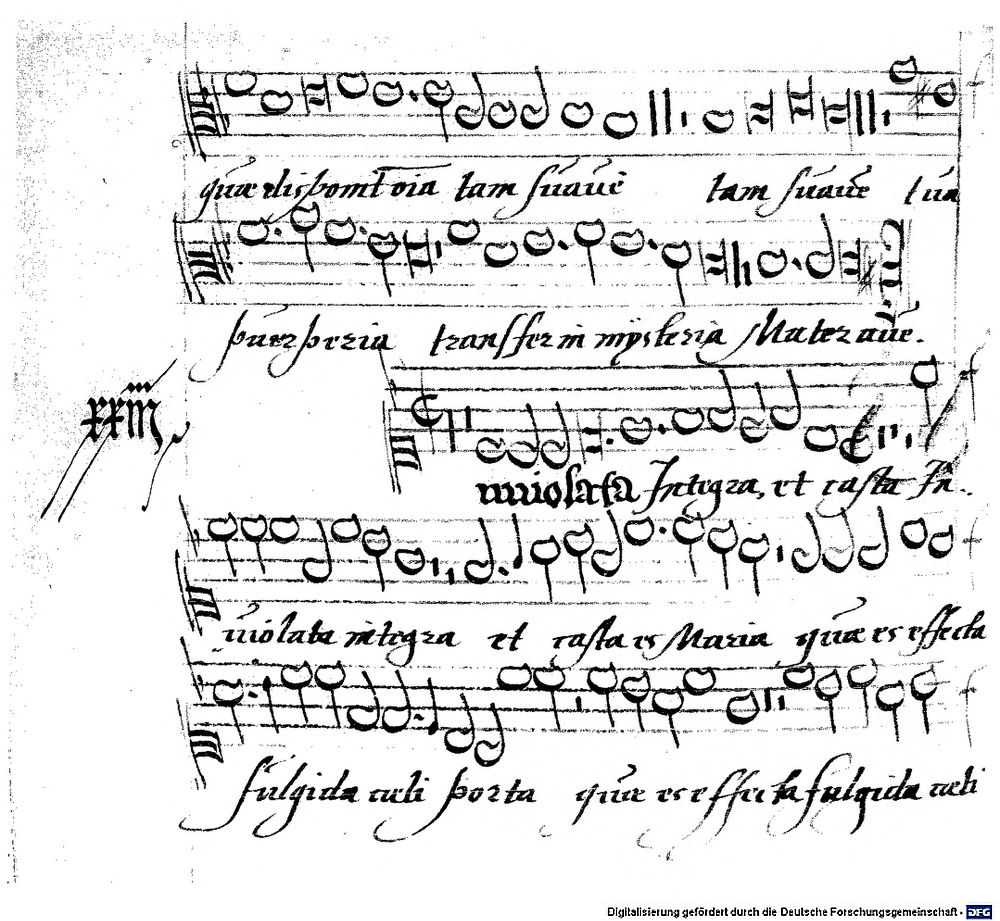 quæ disponit oia tam suavē tam suavē tua
puerperia transfer in mysteria Mater avē.
xxiiii
nviolata Integra, et casta In..
violata integra et casta es Maria quæ es effecta
fulgida cæli porta quæ es effecta fulgida cæli
Digitalisierung gefördert durch die Deutsche Forschungsgemeinschaft - DFG